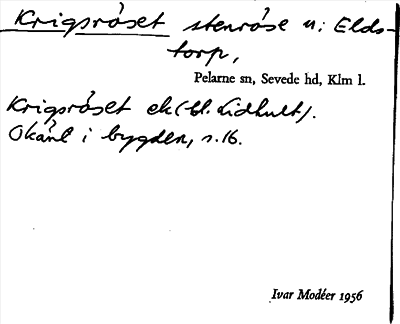 Krigsröset stenröse n: Elds-
torp,
Pelarne sn, Sevede hd, Klm l.
Krigsröset ek (bl. Lidhult).
Okänt i bygden, s. 16.
Ivar Modéer 1956